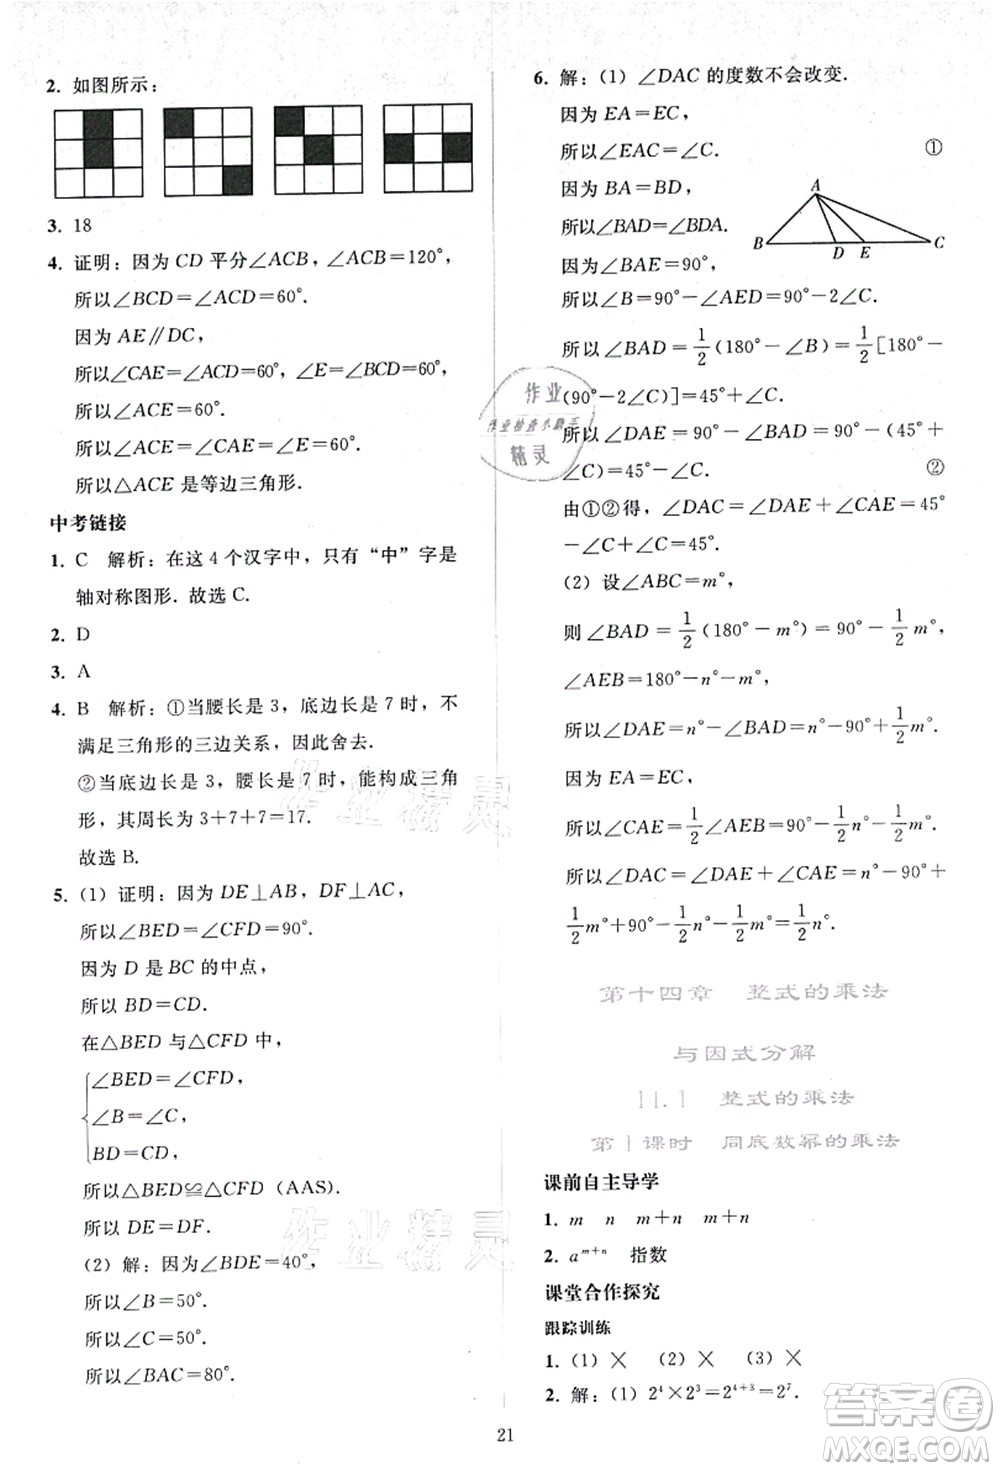 2. 如图所示：
3. 18
4. 证明：因为 CD 平分∠ACB，∠ACB＝120°，
所以∠BCD＝∠ACD＝60°.
因为 AE∥DC，
所以∠CAE＝∠ACD＝60°，∠E＝∠BCD＝60°.
所以∠ACE＝60°.
所以∠ACE＝∠CAE＝∠E＝60°.
所以△ACE 是等边三角形.
中考链接
1. C 解析：在这 4 个汉字中，只有“中”字是
轴对称图形. 故选 C.
2. D
3. A
4. B 解析：①当腰长是 3，底边长是 7 时，不
满足三角形的三边关系，因此舍去.
②当底边长是 3，腰长是 7 时，能构成三角
形，其周长为 3＋7＋7＝17.
故选 B.
5. (1) 证明：因为 DE⊥AB，DF⊥AC，
所以∠BED＝∠CFD＝90°.
因为 D 是 BC 的中点，
所以 BD＝CD.
在△BED 与△CFD 中，
∠BED＝∠CFD，
∠B＝∠C，
BD＝CD，
所以△BED≌△CFD (AAS).
所以 DE＝DF.
(2) 解：因为∠BDE＝40°，
所以∠B＝50°.
所以∠C＝50°.
所以∠BAC＝80°.
6. 解：(1) ∠DAC 的度数不会改变.
因为 EA＝EC，
所以∠EAC＝∠C. ①
因为 BA＝BD，
所以∠BAD＝∠BDA.
A
B D E C
因为∠BAE＝90°，
所以∠B＝90°－∠AED＝90°－2∠C.
所以∠BAD＝1/2(180°－∠B)＝1/2[180°－
(90°－2∠C)]＝45°＋∠C.
所以∠DAE＝90°－∠BAD＝90°－(45°＋
∠C)＝45°－∠C. ②
由①②得，∠DAC＝∠DAE＋∠CAE＝45°
－∠C＋∠C＝45°.
(2) 设∠ABC＝m°，
则∠BAD＝1/2(180°－m°)＝90°－1/2m°，
∠AEB＝180°－n°－m°，
所以∠DAE＝n°－∠BAD＝n°－90°＋1/2m°.
因为 EA＝EC，
所以∠CAE＝1/2∠AEB＝90°－1/2n°－1/2m°.
所以∠DAC＝∠DAE＋∠CAE＝n°－90°＋
1/2m°＋90°－1/2n°－1/2m°＝1/2n°.
第十四章 整式的乘法
与因式分解
14.1 整式的乘法
第 1 课时 同底数幂的乘法
课前自主导学
1. m n m＋n m＋n
2. a^(m＋n) 指数
课堂合作探究
跟踪训练
1. (1) × (2) × (3) ×
2. 解：(1) 2⁴×2³＝2⁴⁺³＝2⁷.
21
作业
作业检查小助手
精灵
作业精灵
作业精灵
答案圈
MXQE.COM